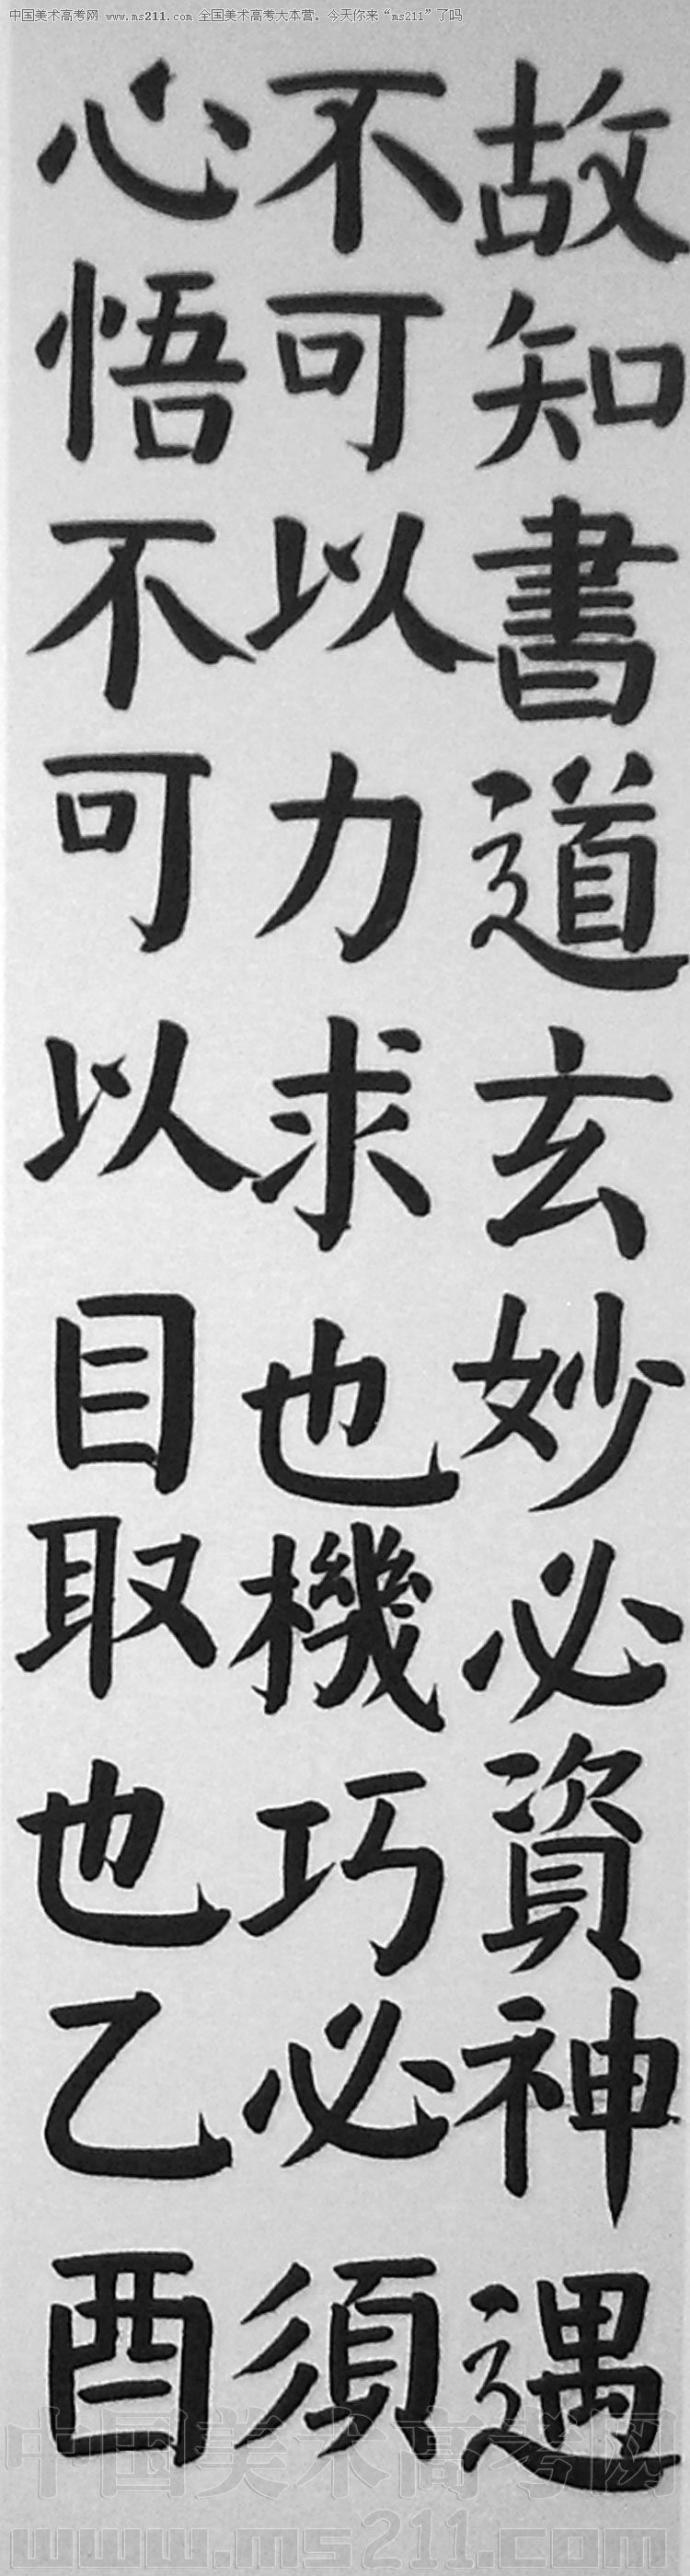 中国美术高考网 www.ms211.com 全国美术高考大本营。今天你来“ms211”了吗
故知書道玄妙必資神遇
不可以力求也機巧必須
心悟不可以目取也乙酉
中国美术高考网
www.ms211.com